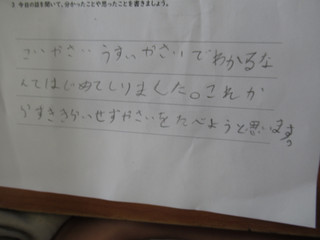 3 今日の話を聞いて、分かったことや思ったことを書きましょう。
こいやさい うすいやさいでわかるな
んてはじめてしりました。これか
らすききらいせずやさいをたべようと思います。